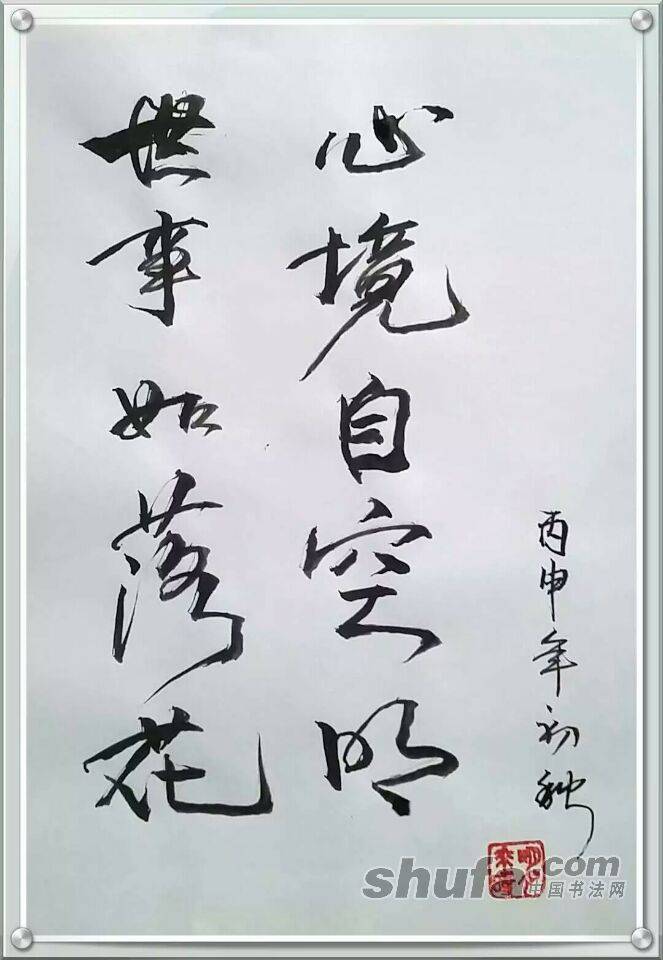 世事如落花
心境自空明
丙申年初秋
shufa.com
中国书法网